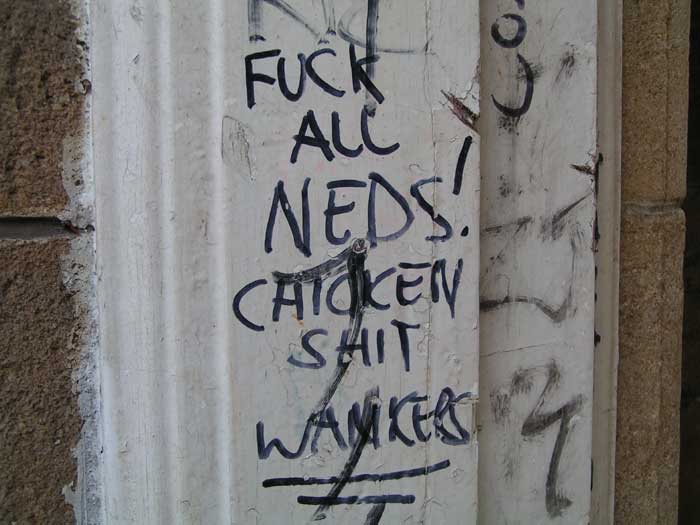 FUCK
ALL
NEDS!
CHICKEN
SHIT
WANKERS